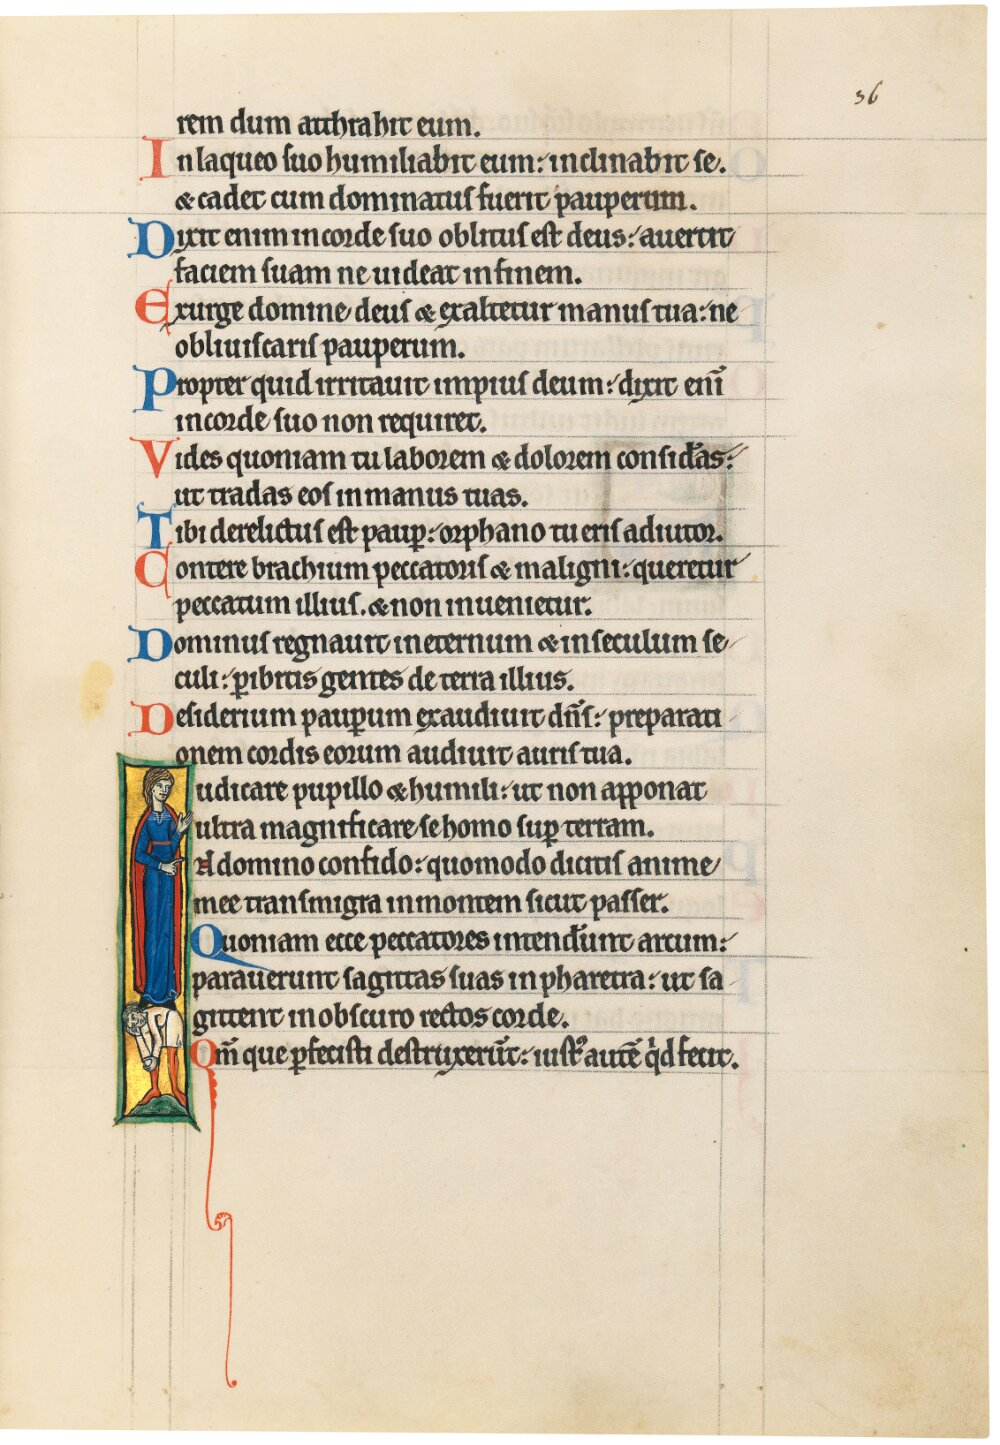 36
rem dum atthrahit eum.
In laqueo suo humiliabit eum: inclinabit se.
& cadet cum dominatus fuerit pauperum.
Dixit enim in corde suo oblitus est deus: auertit
faciem suam ne uideat in finem.
Exurge domine deus & exaltetur manus tua: ne
obliuiscaris pauperum.
Propter quid irritauit impius deum: dixit eni̅
in corde suo non requiret.
Vides quoniam tu laborem & dolorem consid̅as:
ut tradas eos in manus tuas.
Tibi derelictus est paup̲: orphano tu eris adiutor.
Contere brachium peccatoris & maligni: queretur
peccatum illius. & non inuenietur.
Dominus regnauit in eternum & in seculum se
culi: p̲ibitis gentes de terra illius.
Desiderium paup̲um exaudiuit dn̅s: preparati
onem cordis eorum audiuit auris tua.
Iudicare pupillo & humili: ut non apponat
ultra magnificare se homo sup̲ terram.
In domino confido: quomodo dicitis anime
mee transmigra in montem sicut passer.
Quoniam ecce peccatores intend̅unt arcum:
parauerunt sagittas suas in pharetra: ut sa
gittent in obscuro rectos corde.
Qm̅ que p̲fecisti destruxeru̅t: iustꝰ aute̅ qͥd fecit.